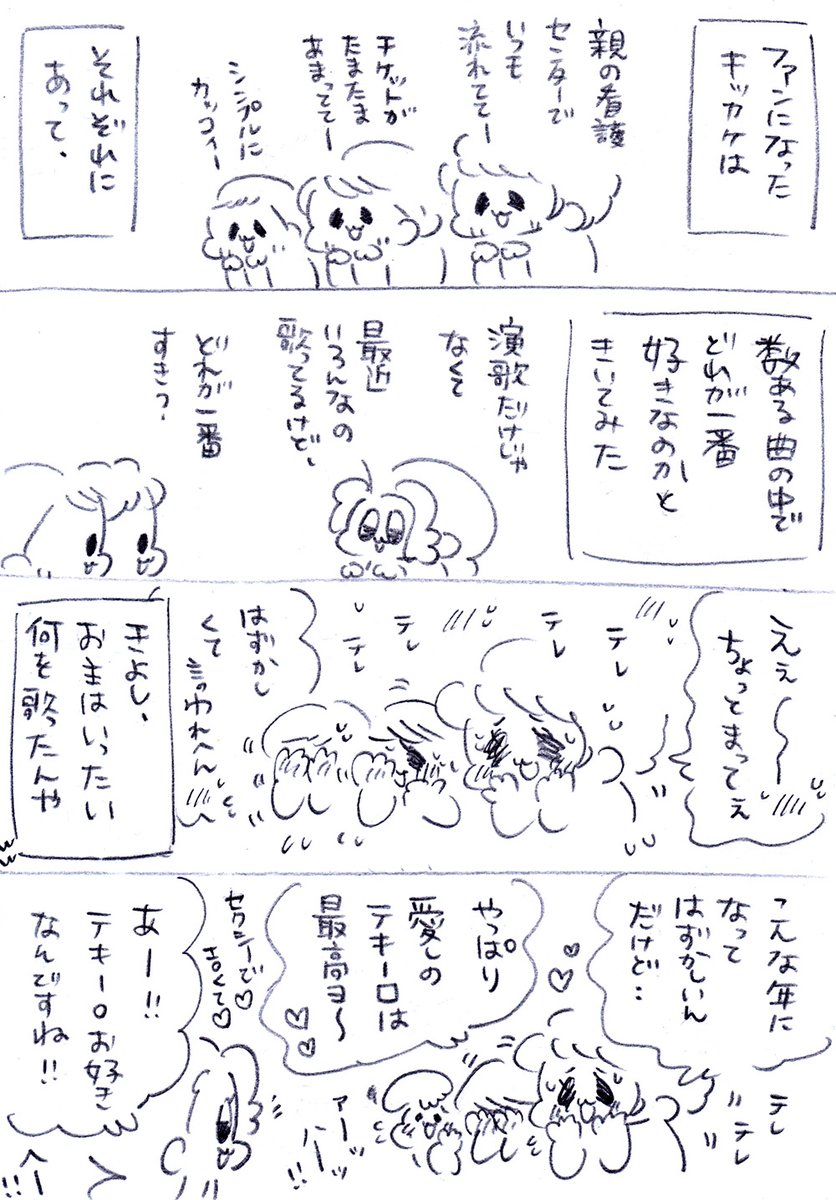 ファンになった
キッカケは
親の看護
センターで
いつも
流れててー
チケットが
たまたま
あまっててー
シンプルに
カッコイー
それぞれに
あって、
数ある曲の中で
どれが一番
好きなのかと
きいてみた
演歌だけじゃ
なくて
最近
いろんなの
歌ってるけど、
どれが一番
すきっ・
えぇ〜〜
ちょっとまってぇ
テレ
テレ
テレ
テレ
はずかし
くて
言われへん
きよし、
お主はいったい
何を歌ったんや
こんな年に
なって
はずかしいん
だけど…
テレ
テレ
やっぱり
愛しの
テキーロは
最高ヨ〜
アーッ
へーッ
!!
セクシーで♡
あー!!
テキーロお好き
なんですね!!
へー
!!